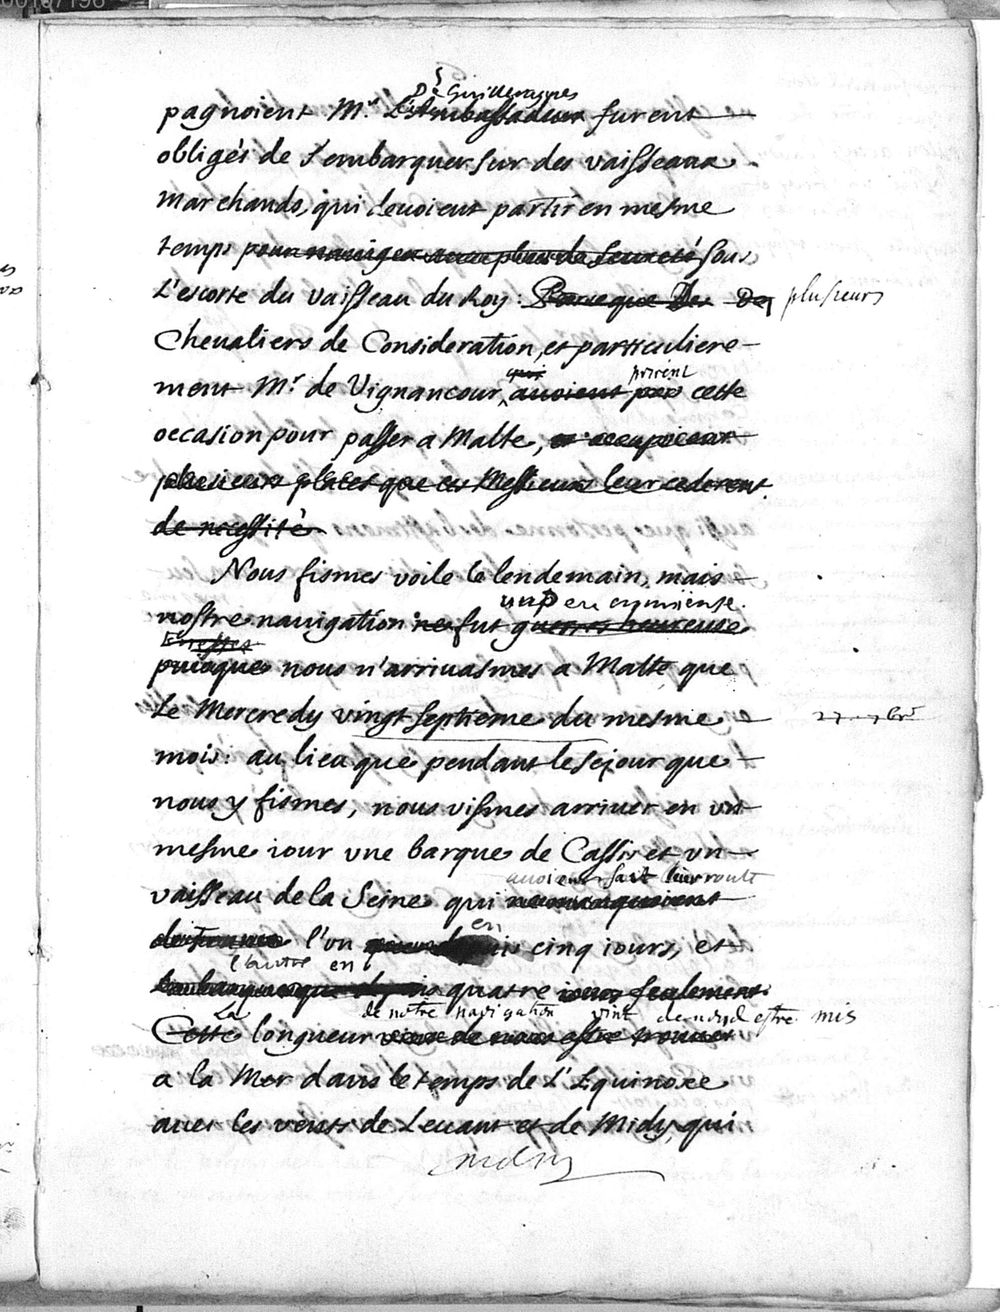 De Guilleragues
pagnoient Mr. L'Ambassadeur furent
obligés de s'embarquer sur des vaisseaux
marchands, qui devoient partir en mesme
temps pour naviger avec plus de seureté sous
L'escorte du vaisseau du Roy: Parceque Des De plusieurs
Chevaliers de Consideration, et particuliere-
qui prirent
ment Mr. de Vignancour, avoient pris cette
occasion pour passer a Malte, et occupoient
plusieurs places que ces Messieurs leur cederent
de necessité
Nous fismes voile le lendemain, mais
un peu ennuieuse.
nostre navigation ne fut guerres heureuse
En effet
puisque nous n'arrivasmes a Malte que
Le Mercredy vingt septieme du mesme 27 7bre
mois: au lieu que pendant le sejour que
nous y fismes, nous vismes arriver en un
mesme iour vne barque de Cassis et vn
avoient fait leur route
vaisseau de la Seine qui
l'on en cinq iours, et
l'autre en
quatre iours seulement
La de notre navigation vint de nous estre mis
Cette longueur vient de nous estre trouvez
a la Mer dans le temps de L'Equinoxe
avec les vents de Levant et de Midy, qui